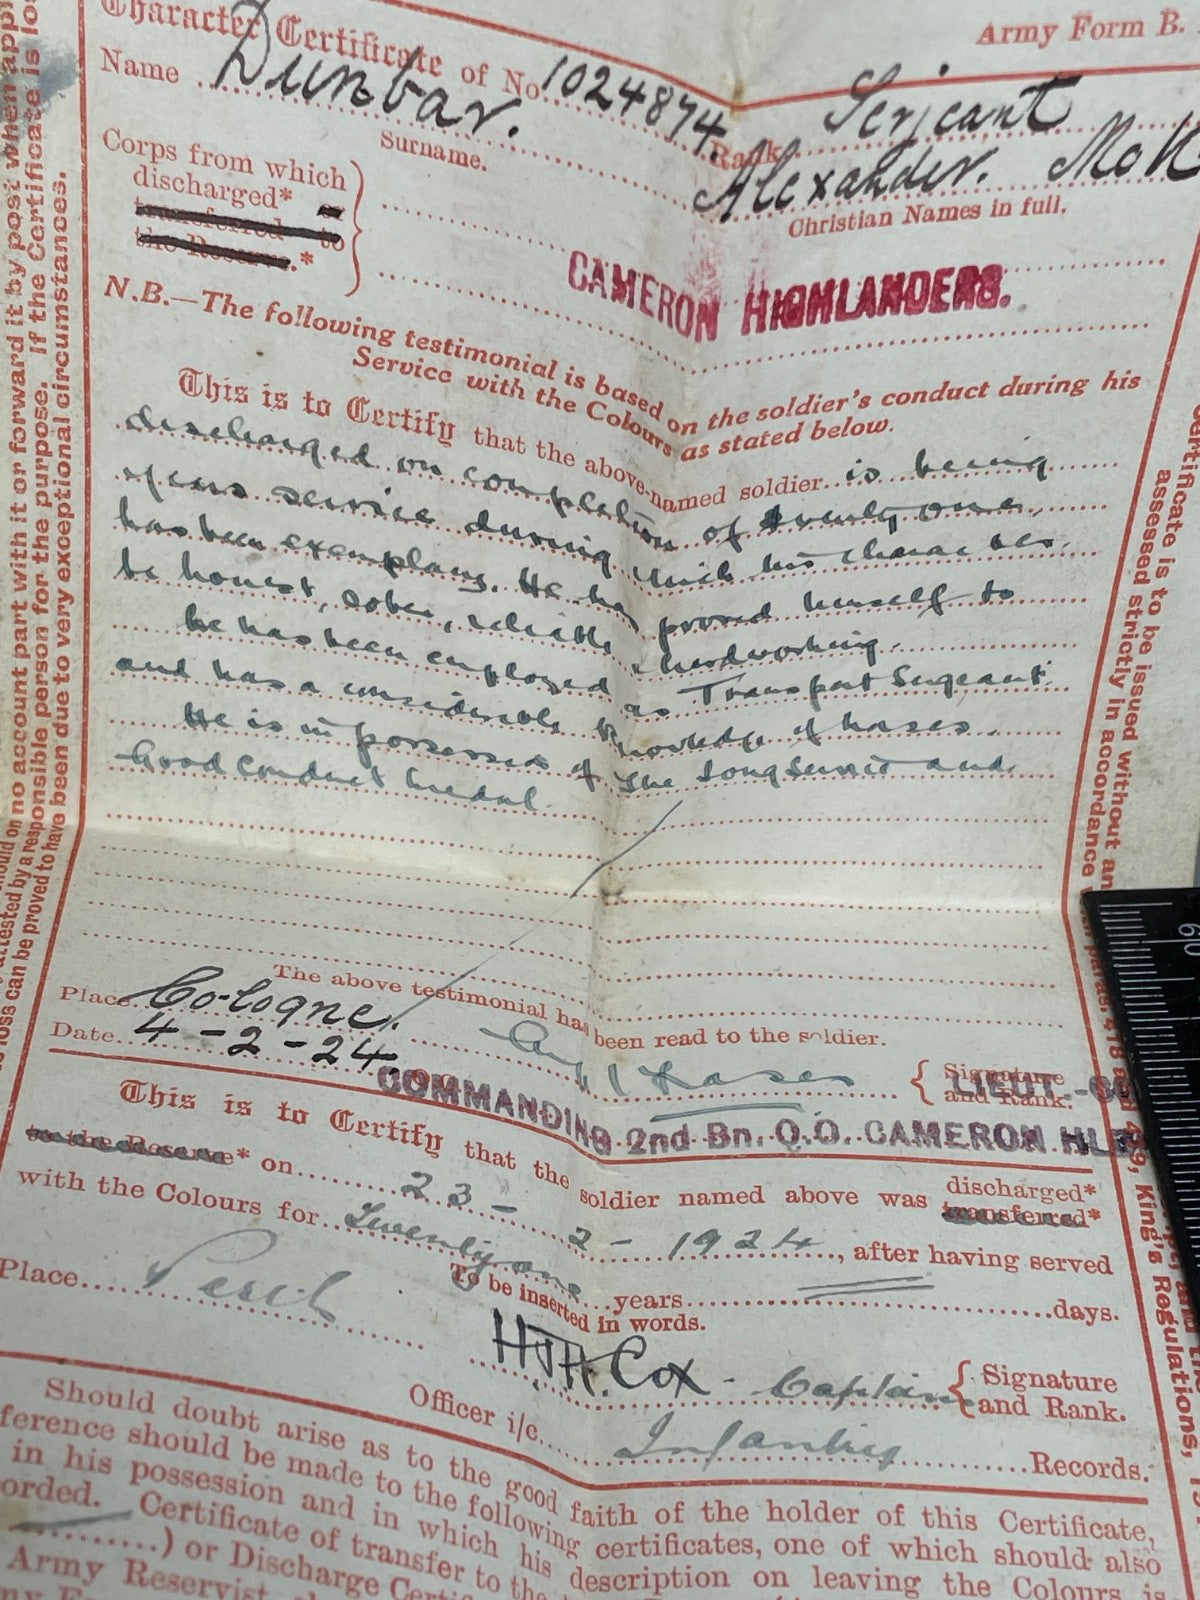 Character Certificate of No. 1024874. Rank Serjeant
Army Form B.
Name Dunbar. Alexander.
Surname. Christian Names in full.
Corps from which
discharged* or
transferred to
the Reserve.*
CAMERON HIGHLANDERS.
N.B.—The following testimonial is based on the soldier's conduct during his
Service with the Colours as stated below.
This is to Certify that the above-named soldier is being
discharged on completion of twenty one
years service during which his character
has been exemplary. He has proved himself to
be honest, sober, reliable & hardworking.
he has been employed as Transport Sergeant
and has a considerable knowledge of horses.
He is in possession of the Long Service and
Good Conduct medal.
The above testimonial has been read to the soldier.
Place Cologne.
Date. 4-2-24
Signature
and Rank.
LIEUT.-CO
COMMANDING 2nd Bn. Q.O. CAMERON HLF
This is to Certify that the soldier named above was discharged*
transferred*
to the Reserve* on 23-2-1924, after having served
with the Colours for Twenty one years days.
To be inserted in words.
Place Perth
H.J.H. Cox - Captain
Signature
and Rank.
Officer i/c. Infantry Records.
Should doubt arise as to the good faith of the holder of this Certificate,
ference should be made to the following certificates, one of which should also
in his possession and in which his description on leaving the Colours is
orded. Certificate of transfer to the
) or Discharge
Army Reservist
no account part with it or forward it by post when
responsible person for the purpose. If the Certificate is
loss can be proved to have been due to very exceptional circumstances.
certificate is to be issued without
assessed strictly in accordance
King's Regulations,
60